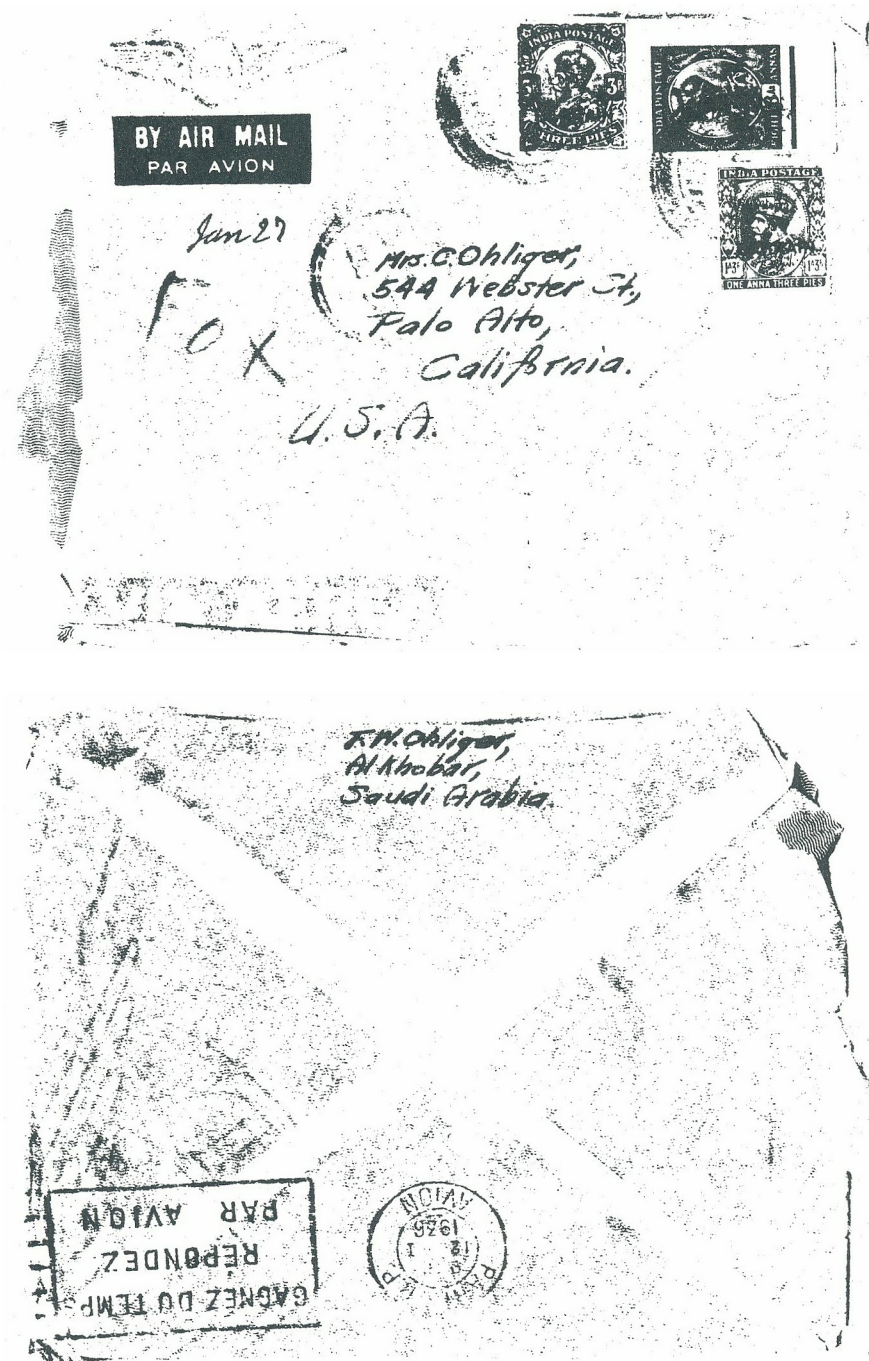 INDIA POSTAGE
3P 3P
THREE PIES
INDIA POSTAGE
EIGHT ANNAS
INDIA POSTAGE
1A3P 1A3P
ONE ANNA THREE PIES
BY AIR MAIL
PAR AVION
Jan 27
Fox
Mrs. C. Ohliger,
544 Webster St.,
Palo Alto,
California.
U.S.A.
F.W. Ohliger,
Al Khobar,
Saudi Arabia.
GAGNEZ DU TEMPS
RÉPONDEZ
PAR AVION
PARIS R.P.
12 1
1936
AVION